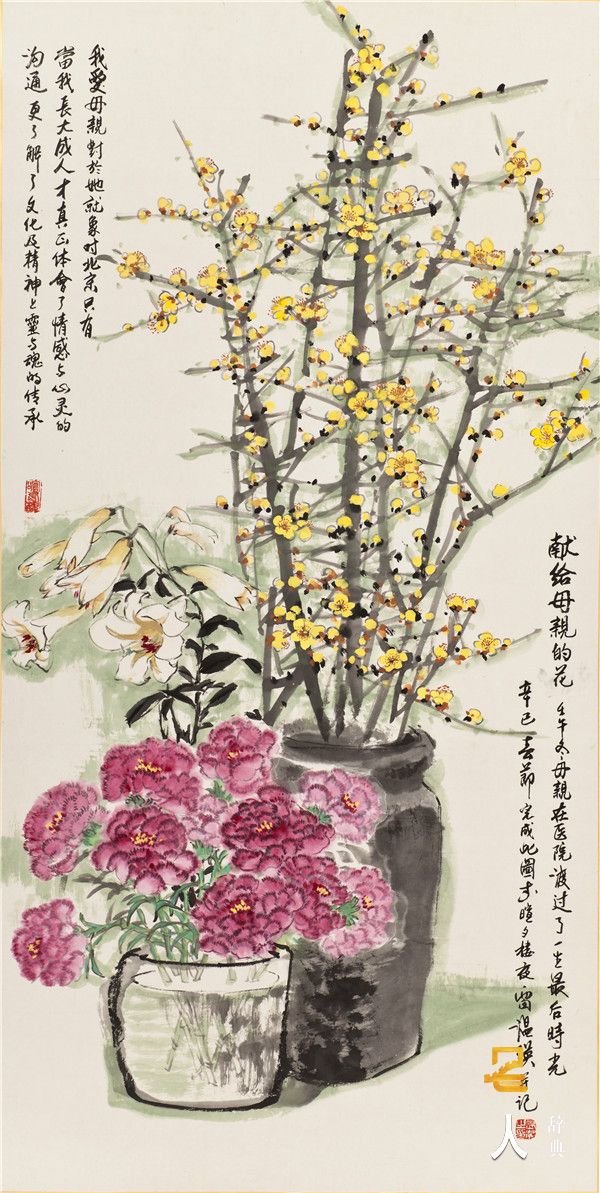 献给母親的花 壬午冬母親在医院渡过了一生最后時光
辛巳春節完成此圖
我愛母親對於她就象对北京只有
當我長大成人才真正体會了情感与心灵的
沟通更了解了文化及精神上靈与魂的传承
人
辞典